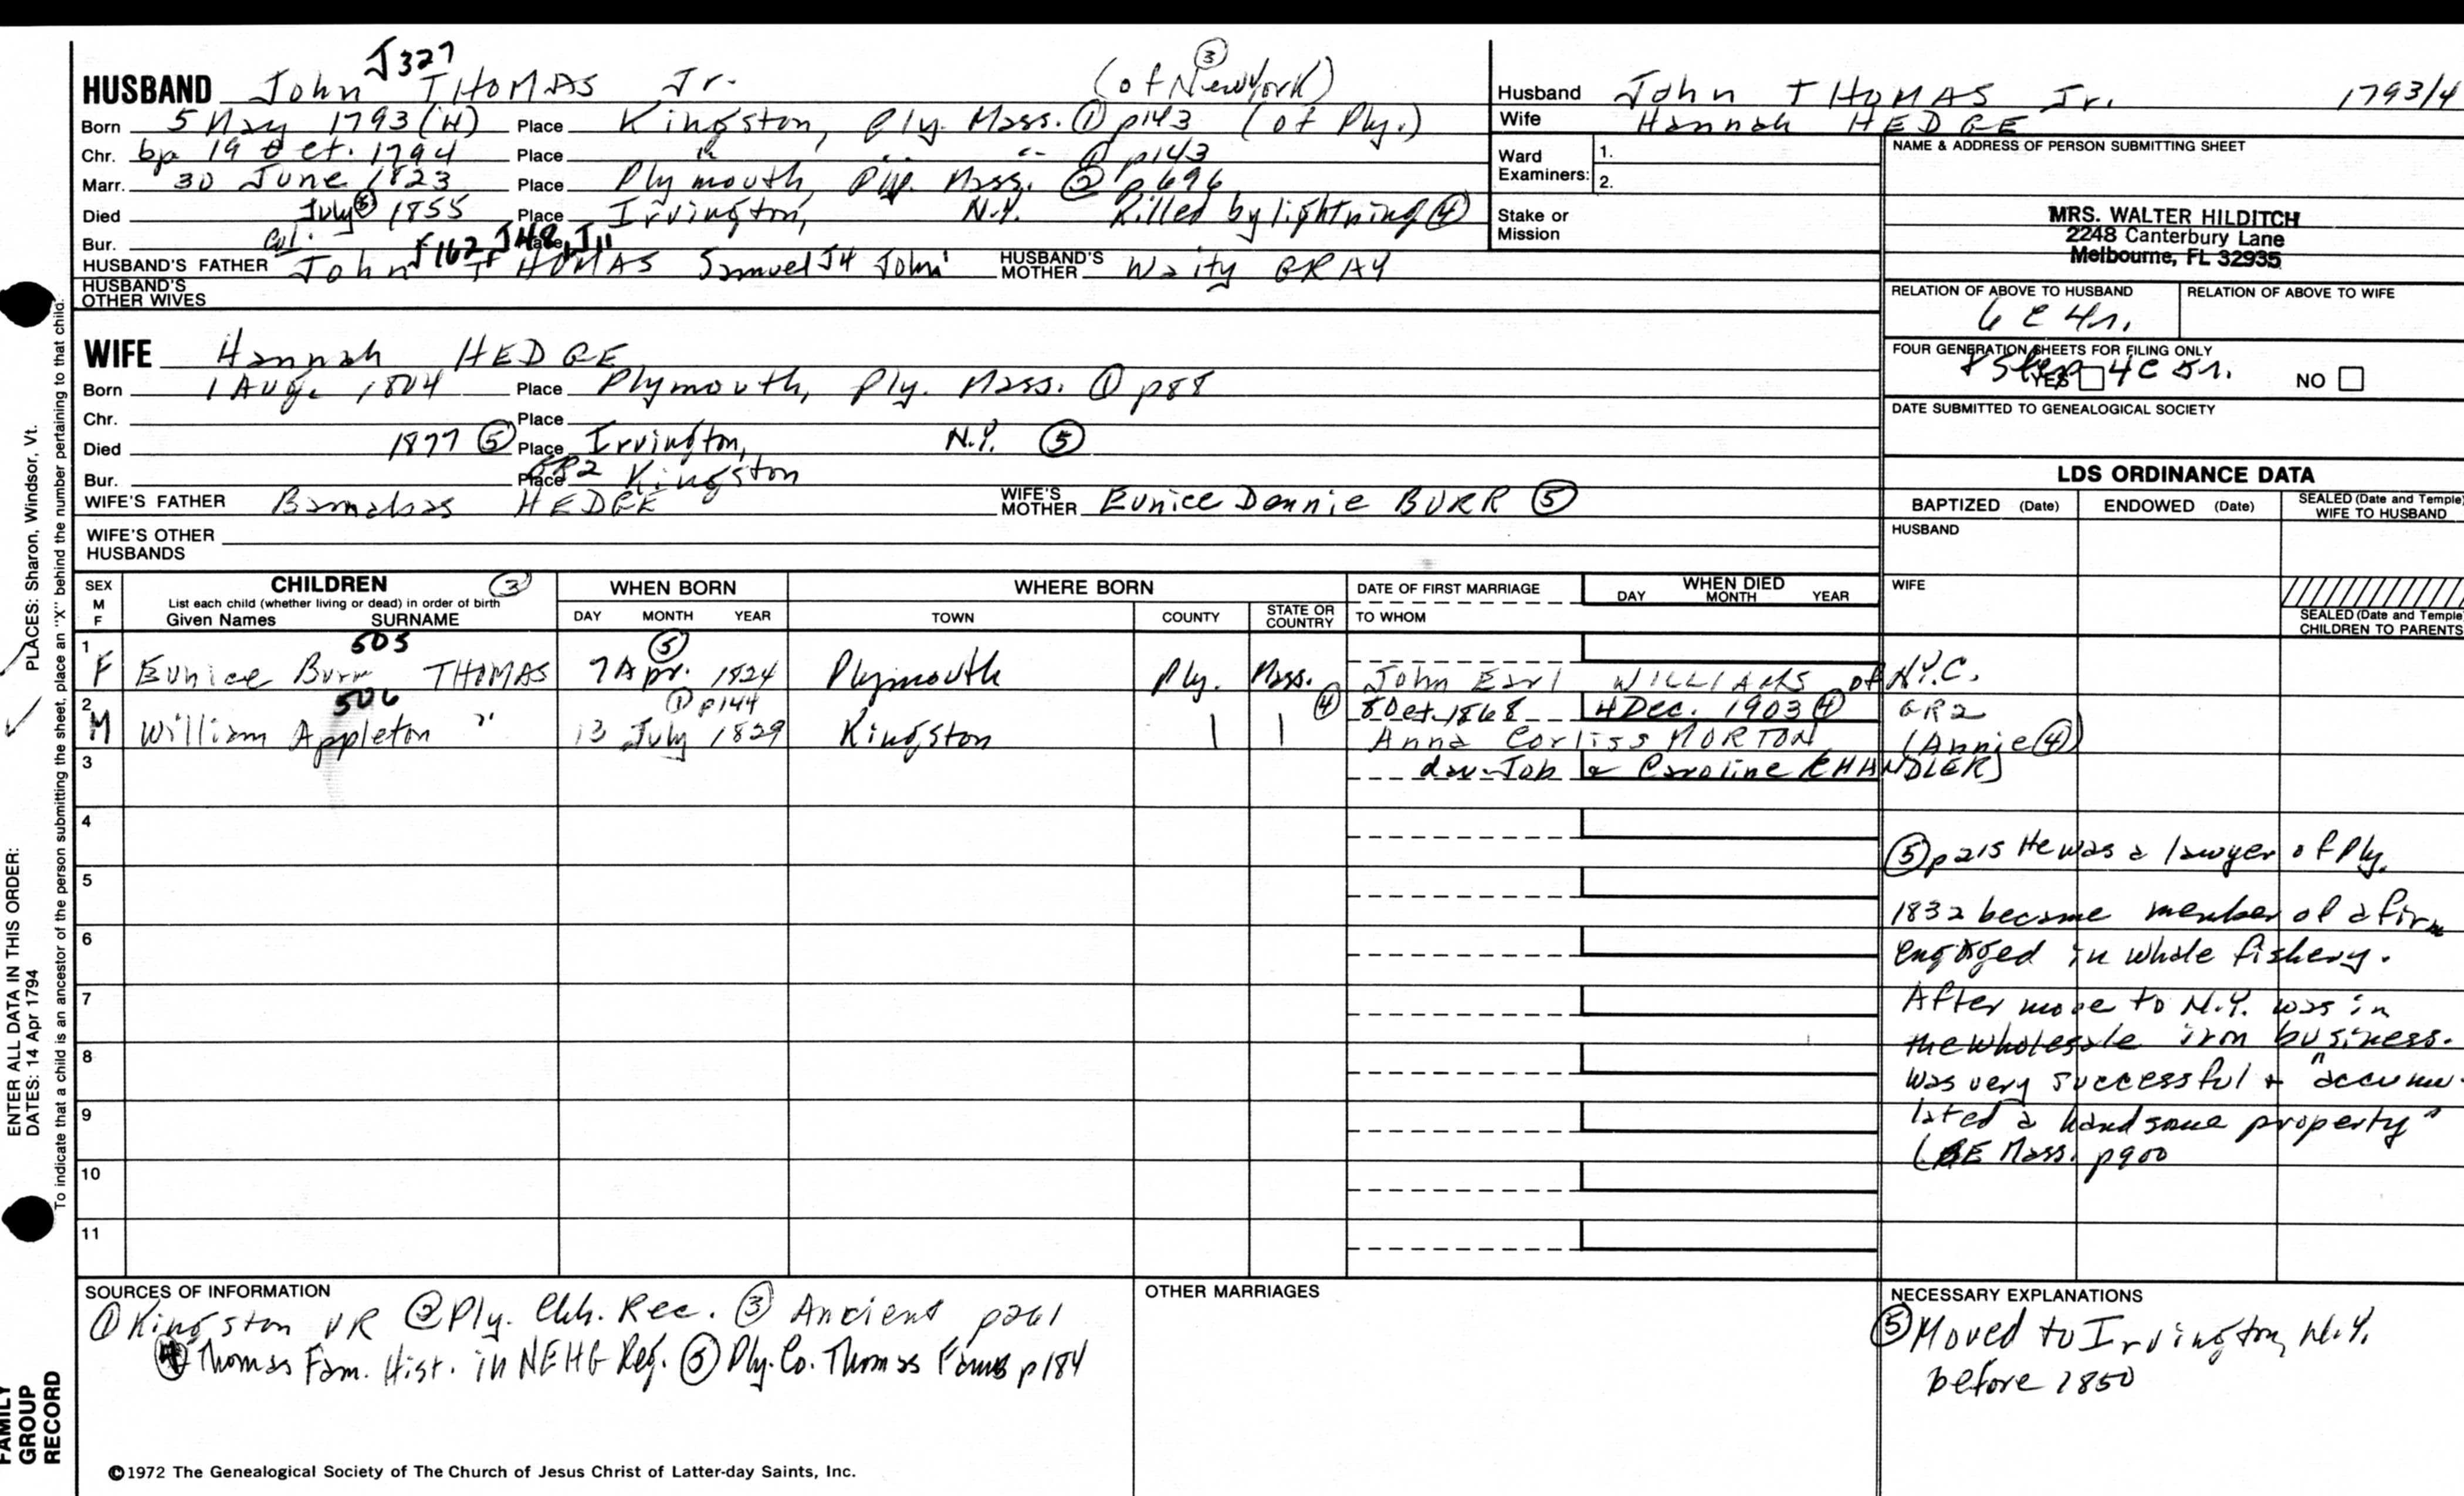 J327
HUSBAND John THOMAS Jr. (of New York) ③
Born 5 May 1793 (H) Place Kingston, Ply. Mass. ① p143 (of Ply.)
Chr. bp 19 Oct. 1794 Place " " " ① p143
Marr. 30 June 1823 Place Plymouth, Ply. Mass. ② p696
Died July ⑤ 1855 Place Irvington, N.Y. Killed by lightning ④
Bur. Col. Place
J162 J48 J11
HUSBAND'S FATHER John THOMAS Samuel J4 John' HUSBAND'S MOTHER Waity GRAY
HUSBAND'S OTHER WIVES
Husband John THOMAS Jr. 1793/4
Wife Hannah HEDGE
Ward Examiners: 1.
2.
Stake or Mission
NAME & ADDRESS OF PERSON SUBMITTING SHEET
MRS. WALTER HILDITCH
2248 Canterbury Lane
Melbourne, FL 32935
RELATION OF ABOVE TO HUSBAND RELATION OF ABOVE TO WIFE
6 C 4r.
FOUR GENERATION SHEETS FOR FILING ONLY
YES NO
4C 5r.
DATE SUBMITTED TO GENEALOGICAL SOCIETY
WIFE Hannah HEDGE
Born 1 Aug. 1804 Place Plymouth, Ply. Mass. ① p88
Chr. Place
Died 1877 ⑤ Place Irvington, N.Y. ⑤
Bur. Place GR2 Kingston
WIFE'S FATHER Barnabas HEDGE WIFE'S MOTHER Eunice Dennie BURR ⑤
WIFE'S OTHER HUSBANDS
LDS ORDINANCE DATA
BAPTIZED (Date) ENDOWED (Date) SEALED (Date and Temple) WIFE TO HUSBAND
HUSBAND
WIFE
SEALED (Date and Temple) CHILDREN TO PARENTS
SEX M F CHILDREN ③ WHEN BORN WHERE BORN DATE OF FIRST MARRIAGE WHEN DIED
List each child (whether living or dead) in order of birth
Given Names SURNAME DAY MONTH YEAR TOWN COUNTY STATE OR COUNTRY TO WHOM DAY MONTH YEAR
505 ⑤
1 F Eunice Burr THOMAS 7 Apr. 1824 Plymouth Ply. Mass. John Earl WILLIAMS of N.Y.C.
506 ① p144 ④ 8 Oct. 1868 4 Dec. 1903 ④ GR2
2 M William Appleton " 13 July 1829 Kingston | | Anna Corliss MORTON (Annie ④)
3 dau. Job & Caroline (CHANDLER)
4
⑤ p215 He was a lawyer of Ply.
5
1832 became member of a firm
6
engaged in whale fishery.
7
After move to N.Y. was in
8
the wholesale iron business.
Was very successful + "accumu-
9
lated a handsome property"
(BE Mass. p900
10
11
SOURCES OF INFORMATION
① Kingston VR ② Ply. Chh. Rec. ③ Ancient p261
④ Thomas Fam. Hist. in NEHG Reg. ⑤ Ply. Co. Thomas Fams p184
OTHER MARRIAGES
NECESSARY EXPLANATIONS
⑤ Moved to Irvington, N.Y.
before 1850
©1972 The Genealogical Society of The Church of Jesus Christ of Latter-day Saints, Inc.
PLACES: Sharon, Windsor, Vt.
ENTER ALL DATA IN THIS ORDER:
DATES: 14 Apr 1794
To indicate that a child is an ancestor of the person submitting the sheet, place an "X" behind the number pertaining to that child.
FAMILY
GROUP
RECORD